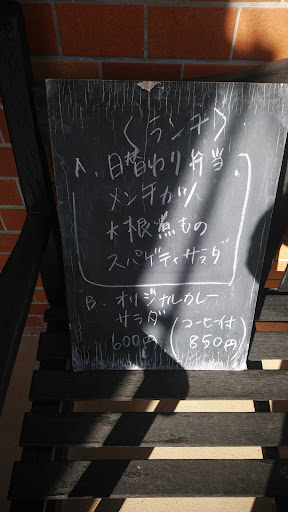 〈ランチ〉
A、日替わり弁当
メンチカツ
大根煮もの
スパゲティサラダ
B、オリジナルカレー
サラダ
600円 (コーヒー付
850円)